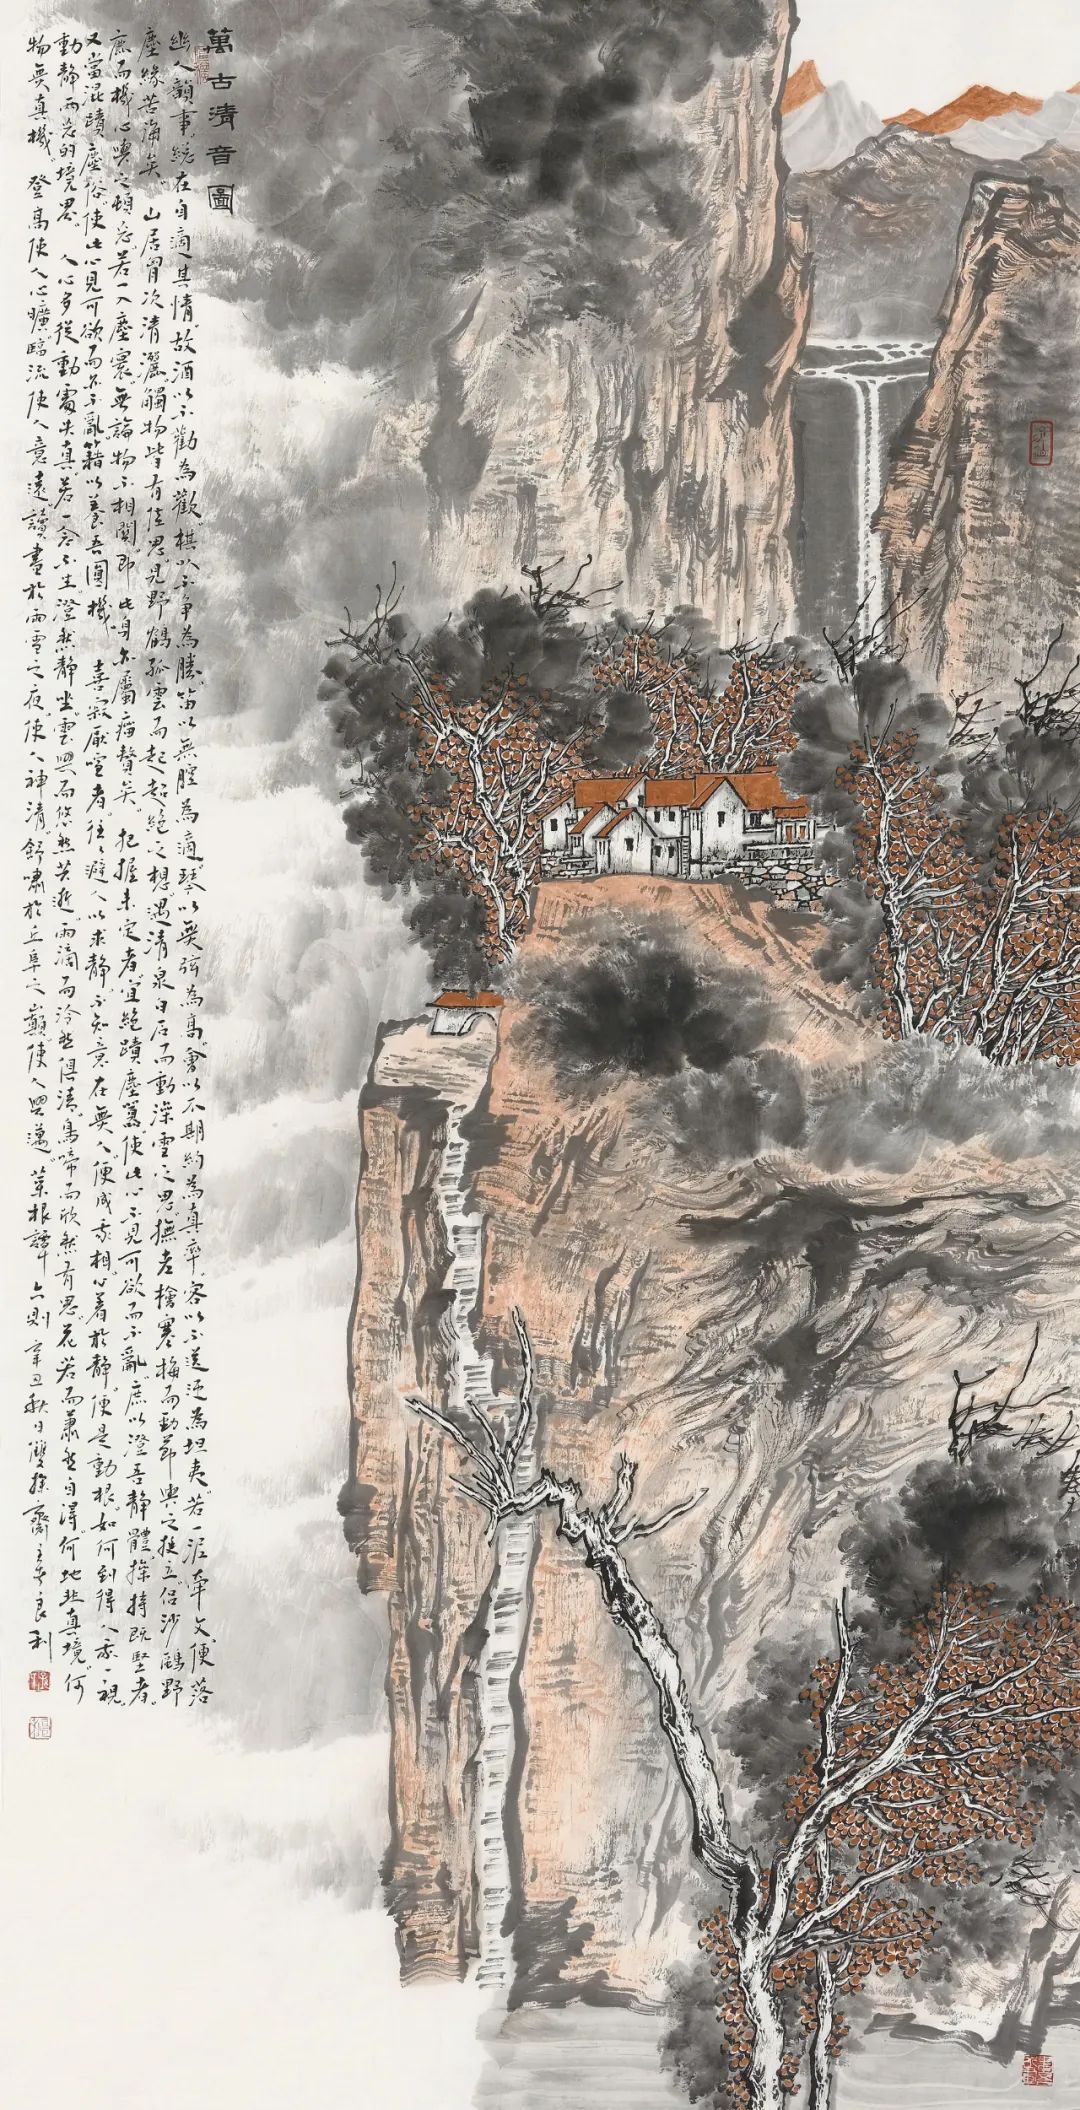 萬古清音圖
幽人韻事總在自適其情故酒以不勸為歡棋以不爭為勝笛以無腔為適琴以無弦為高會以不期約為真率客以不送迎為坦夷若一泥牽文便落
塵緣苦海矣 山居胸次清灑觸物皆有佳思見野鶴孤雲而起超絕之想遇清泉白石而動澡雪之思撫老檜寒梅而勁節興之挺立侶沙鷗野
鹿而機心與之頓忘若一入塵寰無論物不相關即此身亦屬贅矣 把握未定者宜絕蹟塵囂使此心不見可欲而不亂庶以澄吾靜體操持既堅者
又當混蹟塵俗使此心見可欲而亦不亂藉以養吾圓機 喜寂厭喧者往往避人以求靜不知意在無人便成我相心着於靜便是動根如何到得人我一視
動靜兩忘的境界 人心多從動處失真若一念不生澄然靜坐雲興而悠然共逝雨滴而泠然俱清鳥啼而欣然有思花落而蕭然自得何地非真境何
物無真機 登高使人心曠臨流使人意遠讀書於雨雪之夜使人神清舒嘯於丘阜之巔使人興邁 菜根譚六則 辛丑秋日雙操齋主良利